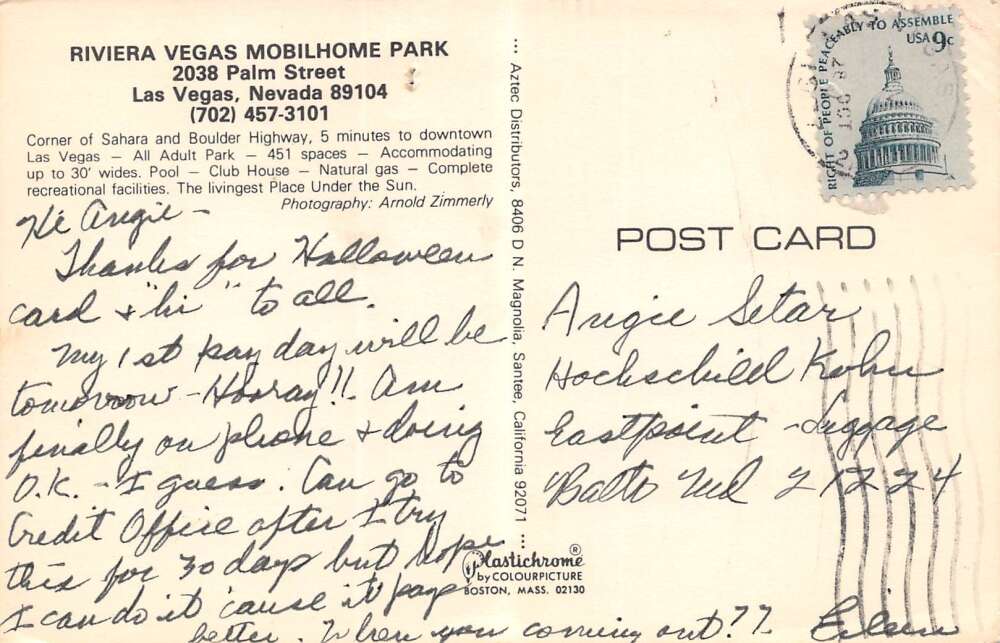 RIVIERA VEGAS MOBILHOME PARK
2038 Palm Street
Las Vegas, Nevada 89104
(702) 457-3101
Corner of Sahara and Boulder Highway, 5 minutes to downtown
Las Vegas — All Adult Park — 451 spaces — Accommodating
up to 30' wides. Pool — Club House — Natural gas — Complete
recreational facilities. The livingest Place Under the Sun.
Photography: Arnold Zimmerly
Hi Angie -
Thanks for Halloween
card & "hi" to all.
My 1st pay day will be
tomorrow - Hooray!! Am
finally on phone & doing
O.K. - I guess. Can go to
Credit Office after I try
this for 30 days but hope
I can do it 'cause it pays
better. When you coming out??
Eileen
... Aztec Distributors, 8406 D N. Magnolia, Santee, California 92071 ...
Plastichrome®
by COLOURPICTURE
BOSTON, MASS. 02130
RIGHT OF PEOPLE PEACEABLY TO ASSEMBLE
USA 9c
POST CARD
Angie Setar
Hochschild Kohn
Eastpoint - Luggage
Balto Md 21224